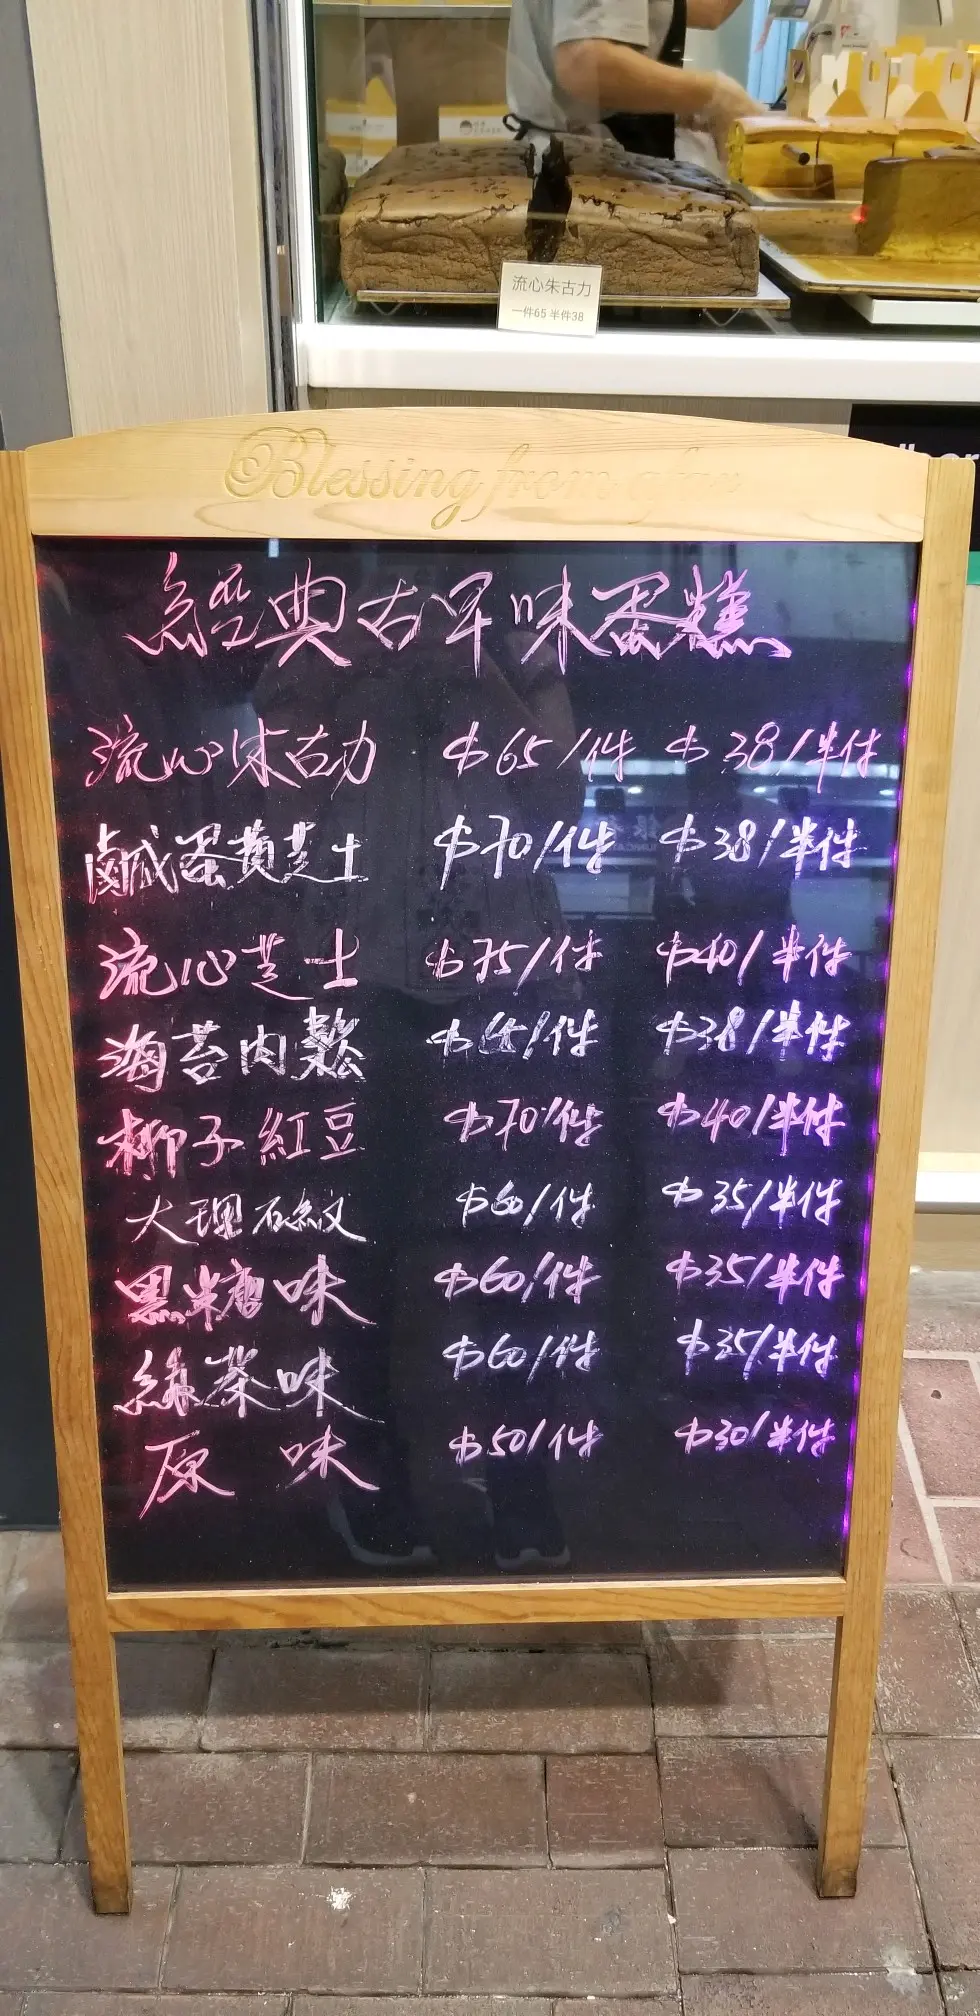 流心朱古力
一件65 半件38
Blessing from afar
經典古早味蛋糕
流心朱古力 $65/件 $38/半件
鹹蛋黄芝士 $70/件 $38/半件
流心芝士 $75/件 $40/半件
海苔肉鬆 $/件 $38/半件
椰子紅豆 $70/件 $40/半件
大理石紋 $60/件 $35/半件
黑糖味 $60/件 $35/半件
綠茶味 $60/件 $35/半件
原味 $50/件 $30/半件